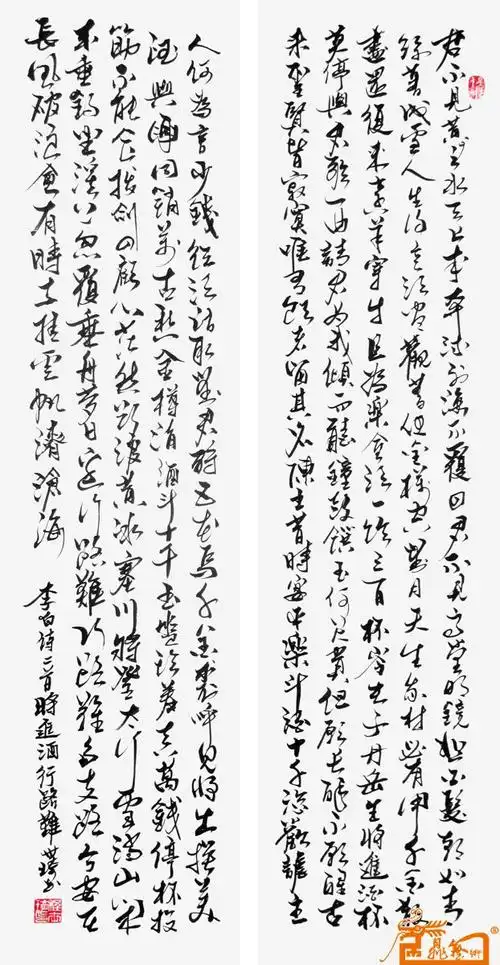 君不見黄河之水天上来奔流到海不復回君不見高堂明鏡悲白髮朝如青
絲暮成雪人生得意須盡歡莫使金樽空對月天生我材必有用千金散
盡還復来烹羊宰牛且為樂會須一飲三百杯岑夫子丹丘生將進酒杯
莫停與君歌一曲請君為我傾耳聽鐘鼓饌玉何足貴但願長醉不願醒古
来聖賢皆寂寞唯有飲者留其名陳王昔時宴平樂斗酒十千恣歡謔主
人何為言少錢径須沽取對君酌五花馬千金裘呼兒將出換美
酒與爾同銷萬古愁金樽清酒斗十千玉盤珍羞直萬錢停杯投
筯不能食拔劍四顧心茫然欲渡黄河冰塞川將登太行雪滿山閑
来垂釣坐溪上忽復乘舟夢日邊行路難行路難多歧路今安在
長風破浪會有時直挂雲帆濟滄海
李白诗二首將進酒行路難